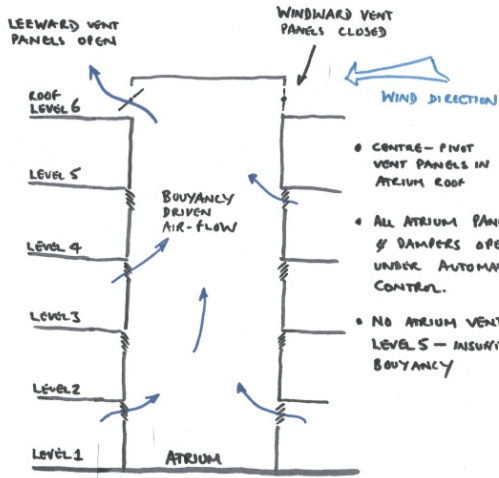 LEEWARD VENT
PANELS OPEN
WINDWARD VENT
PANELS CLOSED
WIND DIRECTION
ROOF
LEVEL 6
LEVEL 5
LEVEL 4
LEVEL 3
LEVEL 2
LEVEL 1
BOUYANCY
DRIVEN
AIR-FLOW
ATRIUM
• CENTRE-PIVOT
VENT PANELS IN
ATRIUM ROOF
• ALL ATRIUM PAN
& DAMPERS OPE
UNDER AUTOMA
CONTROL.
• NO ATRIUM VENT
LEVEL 5 - INSUFFI
BOUYANCY